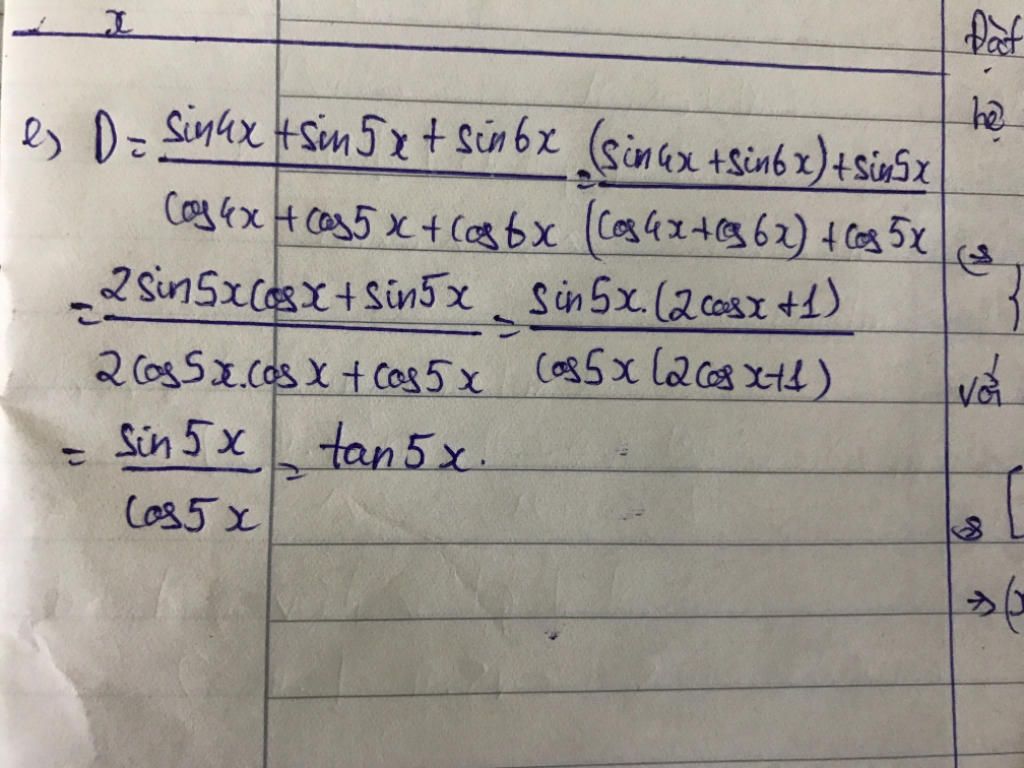 x
Đặt
hệ
e) D = (sin4x + sin5x + sin6x)/(cos4x + cos5x + cos6x) = ((sin4x + sin6x) + sin5x)/((cos4x + cos6x) + cos5x)
= (2sin5xcosx + sin5x)/(2cos5x.cosx + cos5x) = (sin5x.(2cosx + 1))/(cos5x(2cosx+1))
Với
= sin5x/cos5x = tan5x.